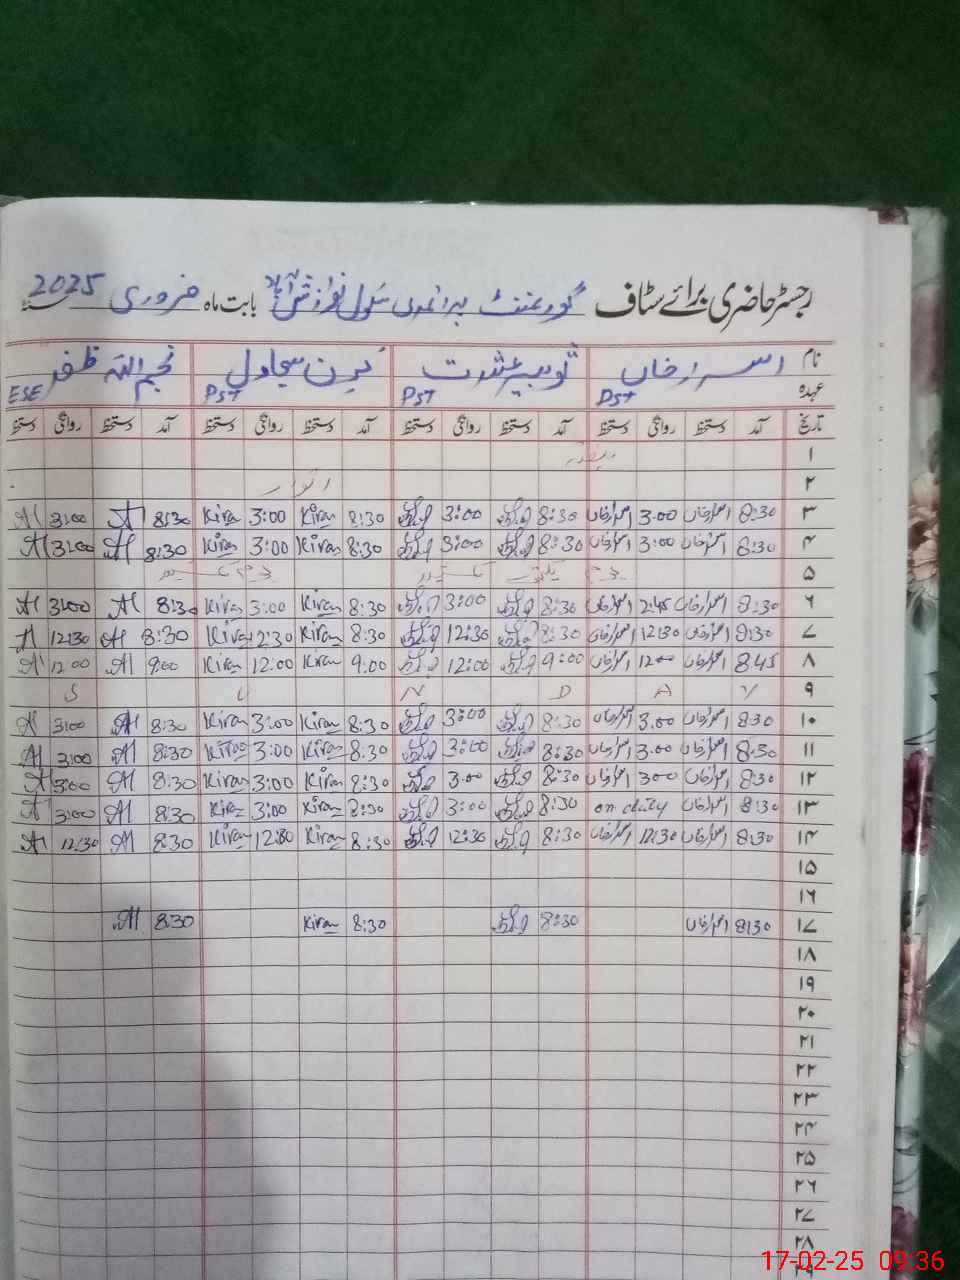 رجسٹر حاضری برائے سٹاف گورنمنٹ پرائمری سکول نوازش آباد بابت ماہ فروری 2025
نام اسرار خاں توبیہ عشرت کرن سجاول نجم اللہ ظفر
عہدہ PST PST PST ESE
تاریخ آمد دستخط روانگی دستخط آمد دستخط روانگی دستخط آمد دستخط روانگی دستخط آمد دستخط روانگی دستخط
۱
۲ اتوار
۳ 8:30 اسرارخاں 3:00 اسرارخاں 8:30 3:00 8:30 Kiran 3:00 Kiran 8:30 AI 3:00 AI
۴ 8:30 اسرارخاں 3:00 اسرارخاں 8:30 3:00 8:30 Kiran 3:00 Kiran 8:30 AI 3:00 AI
۵ یوم یکجہتی کشمیر یوم کشمیر
۶ 8:30 اسرارخاں 2:45 اسرارخاں 8:30 3:00 8:30 Kiran 3:00 Kiran 8:30 AI 3:00 AI
۷ 8:30 اسرارخاں 12:30 اسرارخاں 8:30 12:30 8:30 Kiran 2:30 Kiran 8:30 AI 12:30 AI
۸ 8:45 اسرارخاں 12:00 اسرارخاں 9:00 12:00 9:00 Kiran 12:00 Kiran 9:00 AI 12:00 AI
۹ S U N D A Y
۱۰ 8:30 اسرارخاں 3:00 اسرارخاں 8:30 3:00 8:30 Kiran 3:00 Kiran 8:30 AI 3:00 AI
۱۱ 8:30 اسرارخاں 3:00 اسرارخاں 8:30 3:00 8:30 Kiran 3:00 Kiran 8:30 AI 3:00 AI
۱۲ 8:30 اسرارخاں 3:00 اسرارخاں 8:30 3:00 8:30 Kiran 3:00 Kiran 8:30 AI 3:00 AI
۱۳ 8:30 اسرارخاں on duty 8:30 3:00 8:30 Kiran 3:00 Kiran 8:30 AI 3:00 AI
۱۴ 8:30 اسرارخاں 12:30 اسرارخاں 8:30 12:30 8:30 Kiran 12:30 Kiran 8:30 AI 12:30 AI
۱۵
۱۶
۱۷ 8:30 اسرارخاں 8:30 8:30 Kiran 8:30 AI
۱۸
۱۹
۲۰
۲۱
۲۲
۲۳
۲۴
۲۵
۲۶
۲۷
۲۸
۲۹
17-02-25 09:36